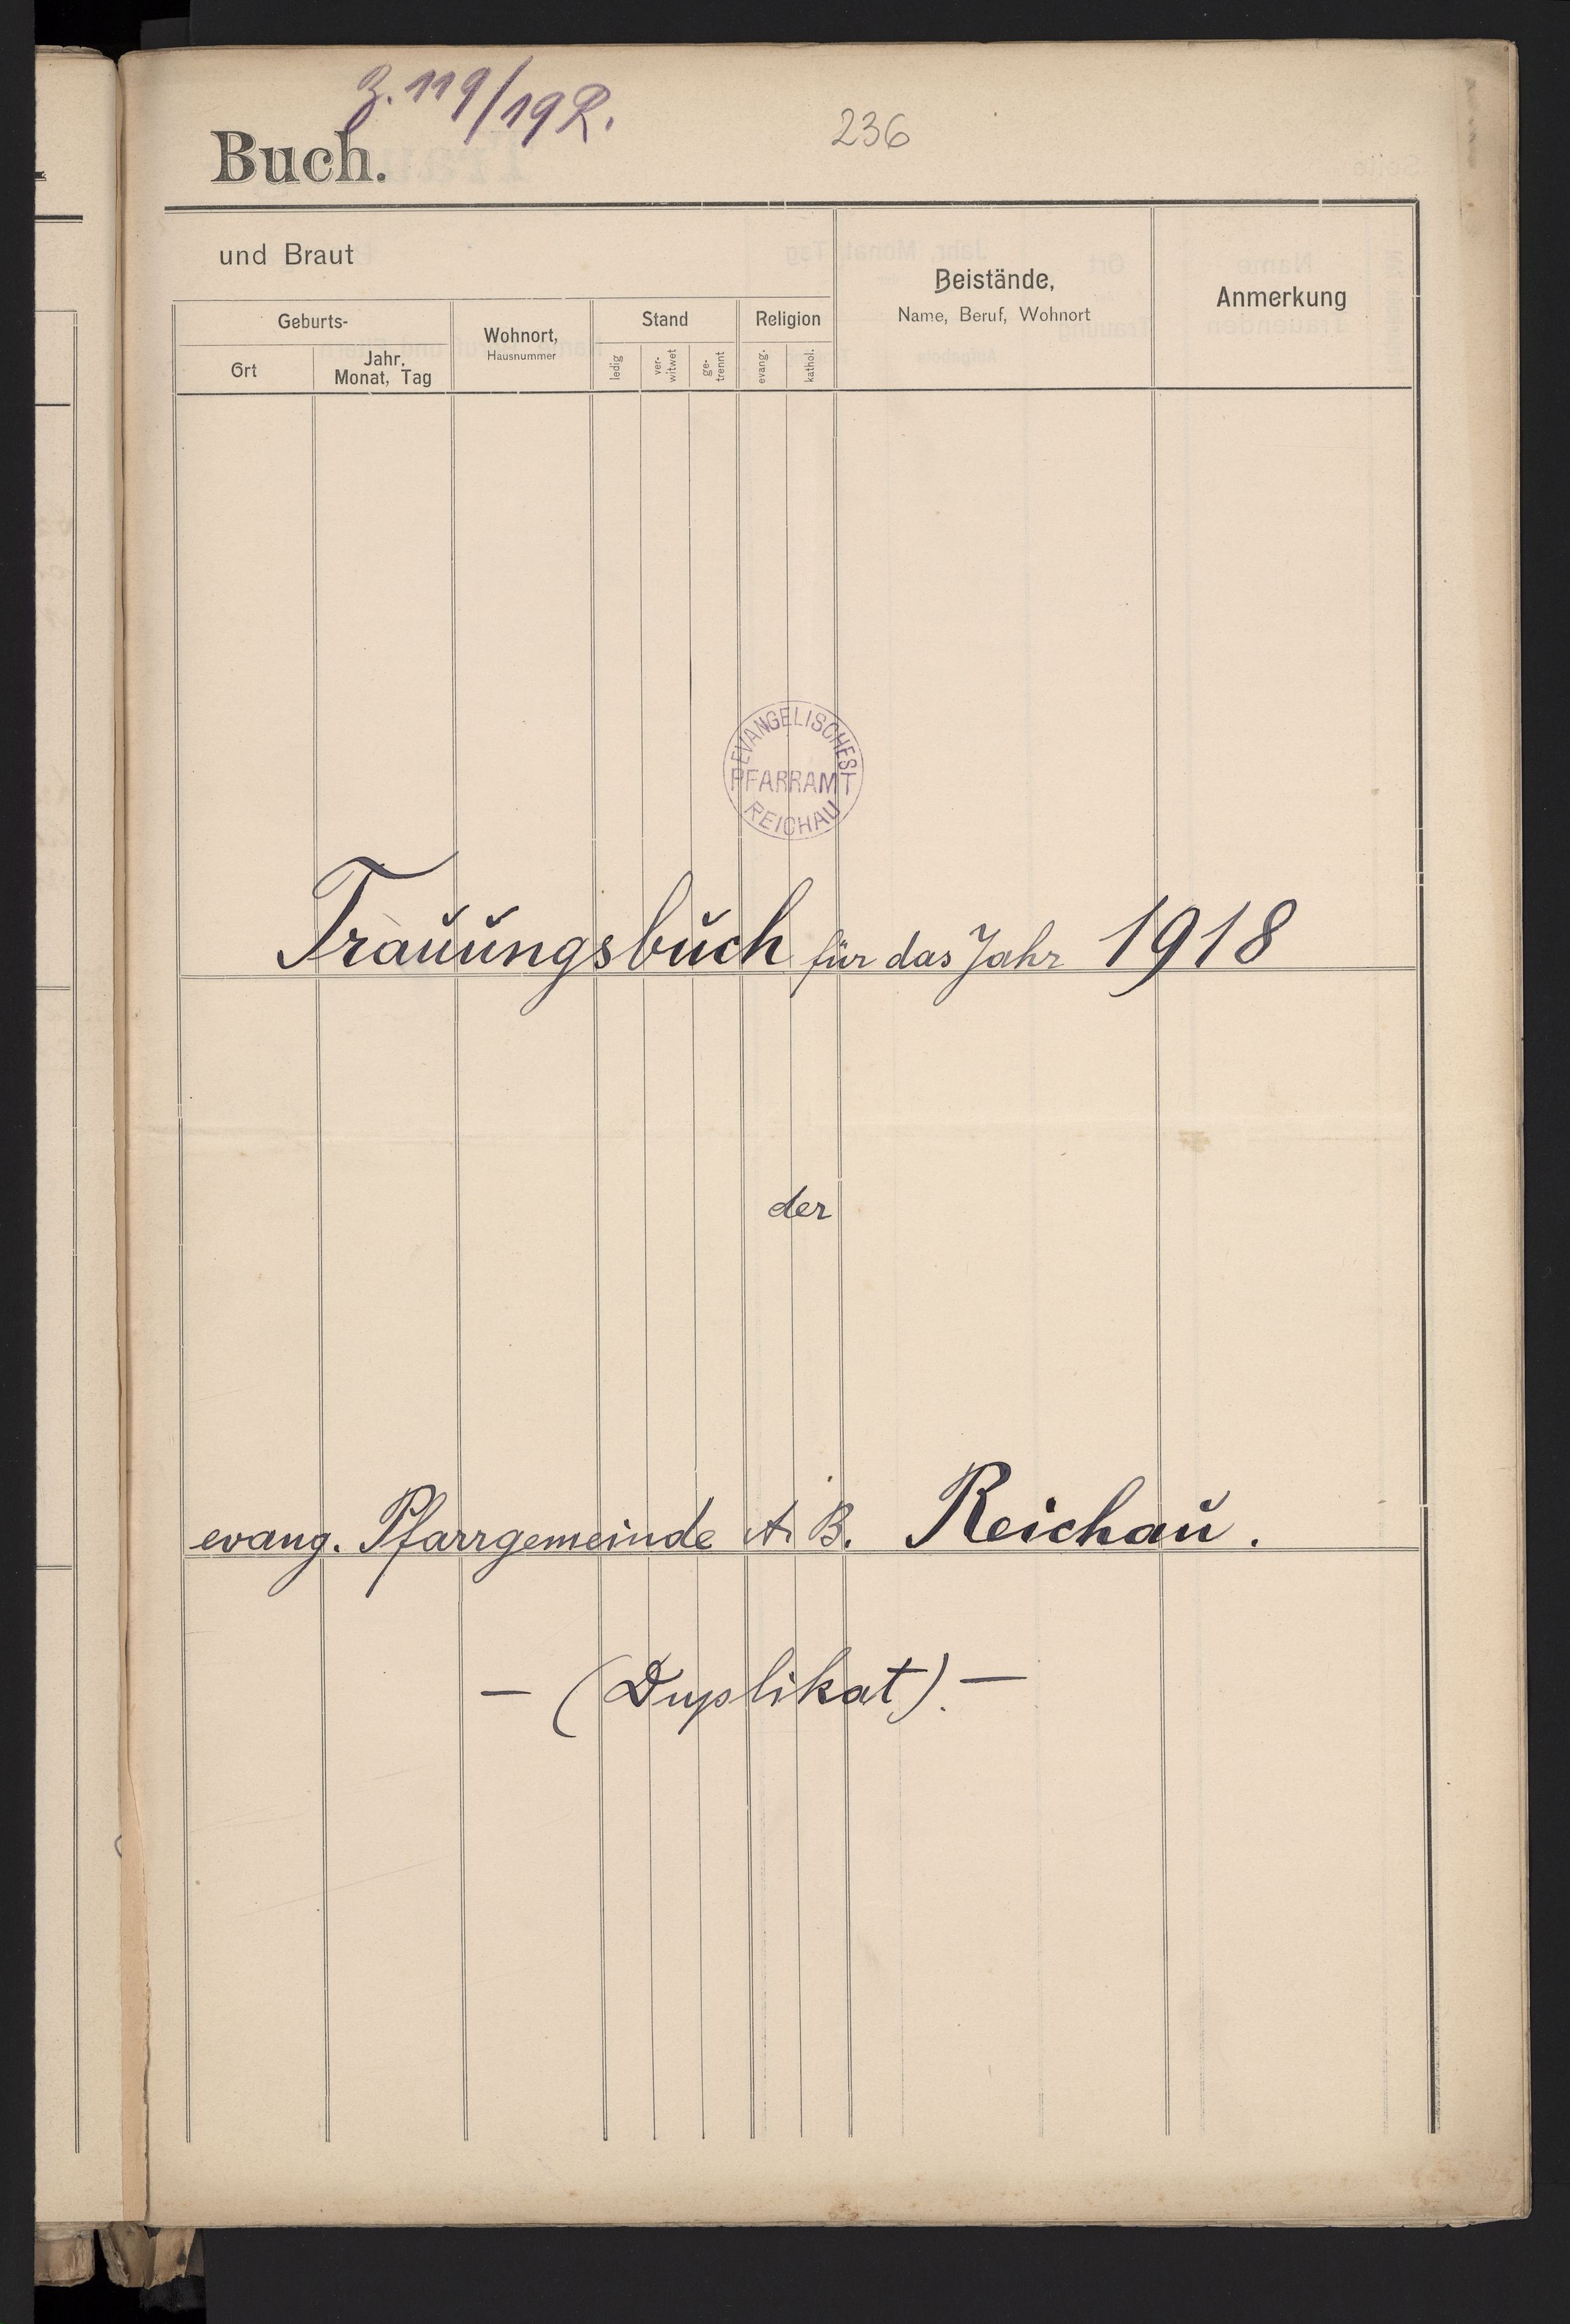 Z. 119/19 R.
236
Buch.
und Braut
Geburts-
Ort
Jahr, Monat, Tag
Wohnort,
Hausnummer
Stand
ledig
ver-witwet
ge-trennt
Religion
evang.
kathol.
Beistände,
Name, Beruf, Wohnort
Anmerkung
EVANGELISCHES
PFARRAMT
REICHAU
Trauungsbuch für das Jahr 1918
der
evang. Pfarrgemeinde A. B. Reichau.
— (Duplikat). —